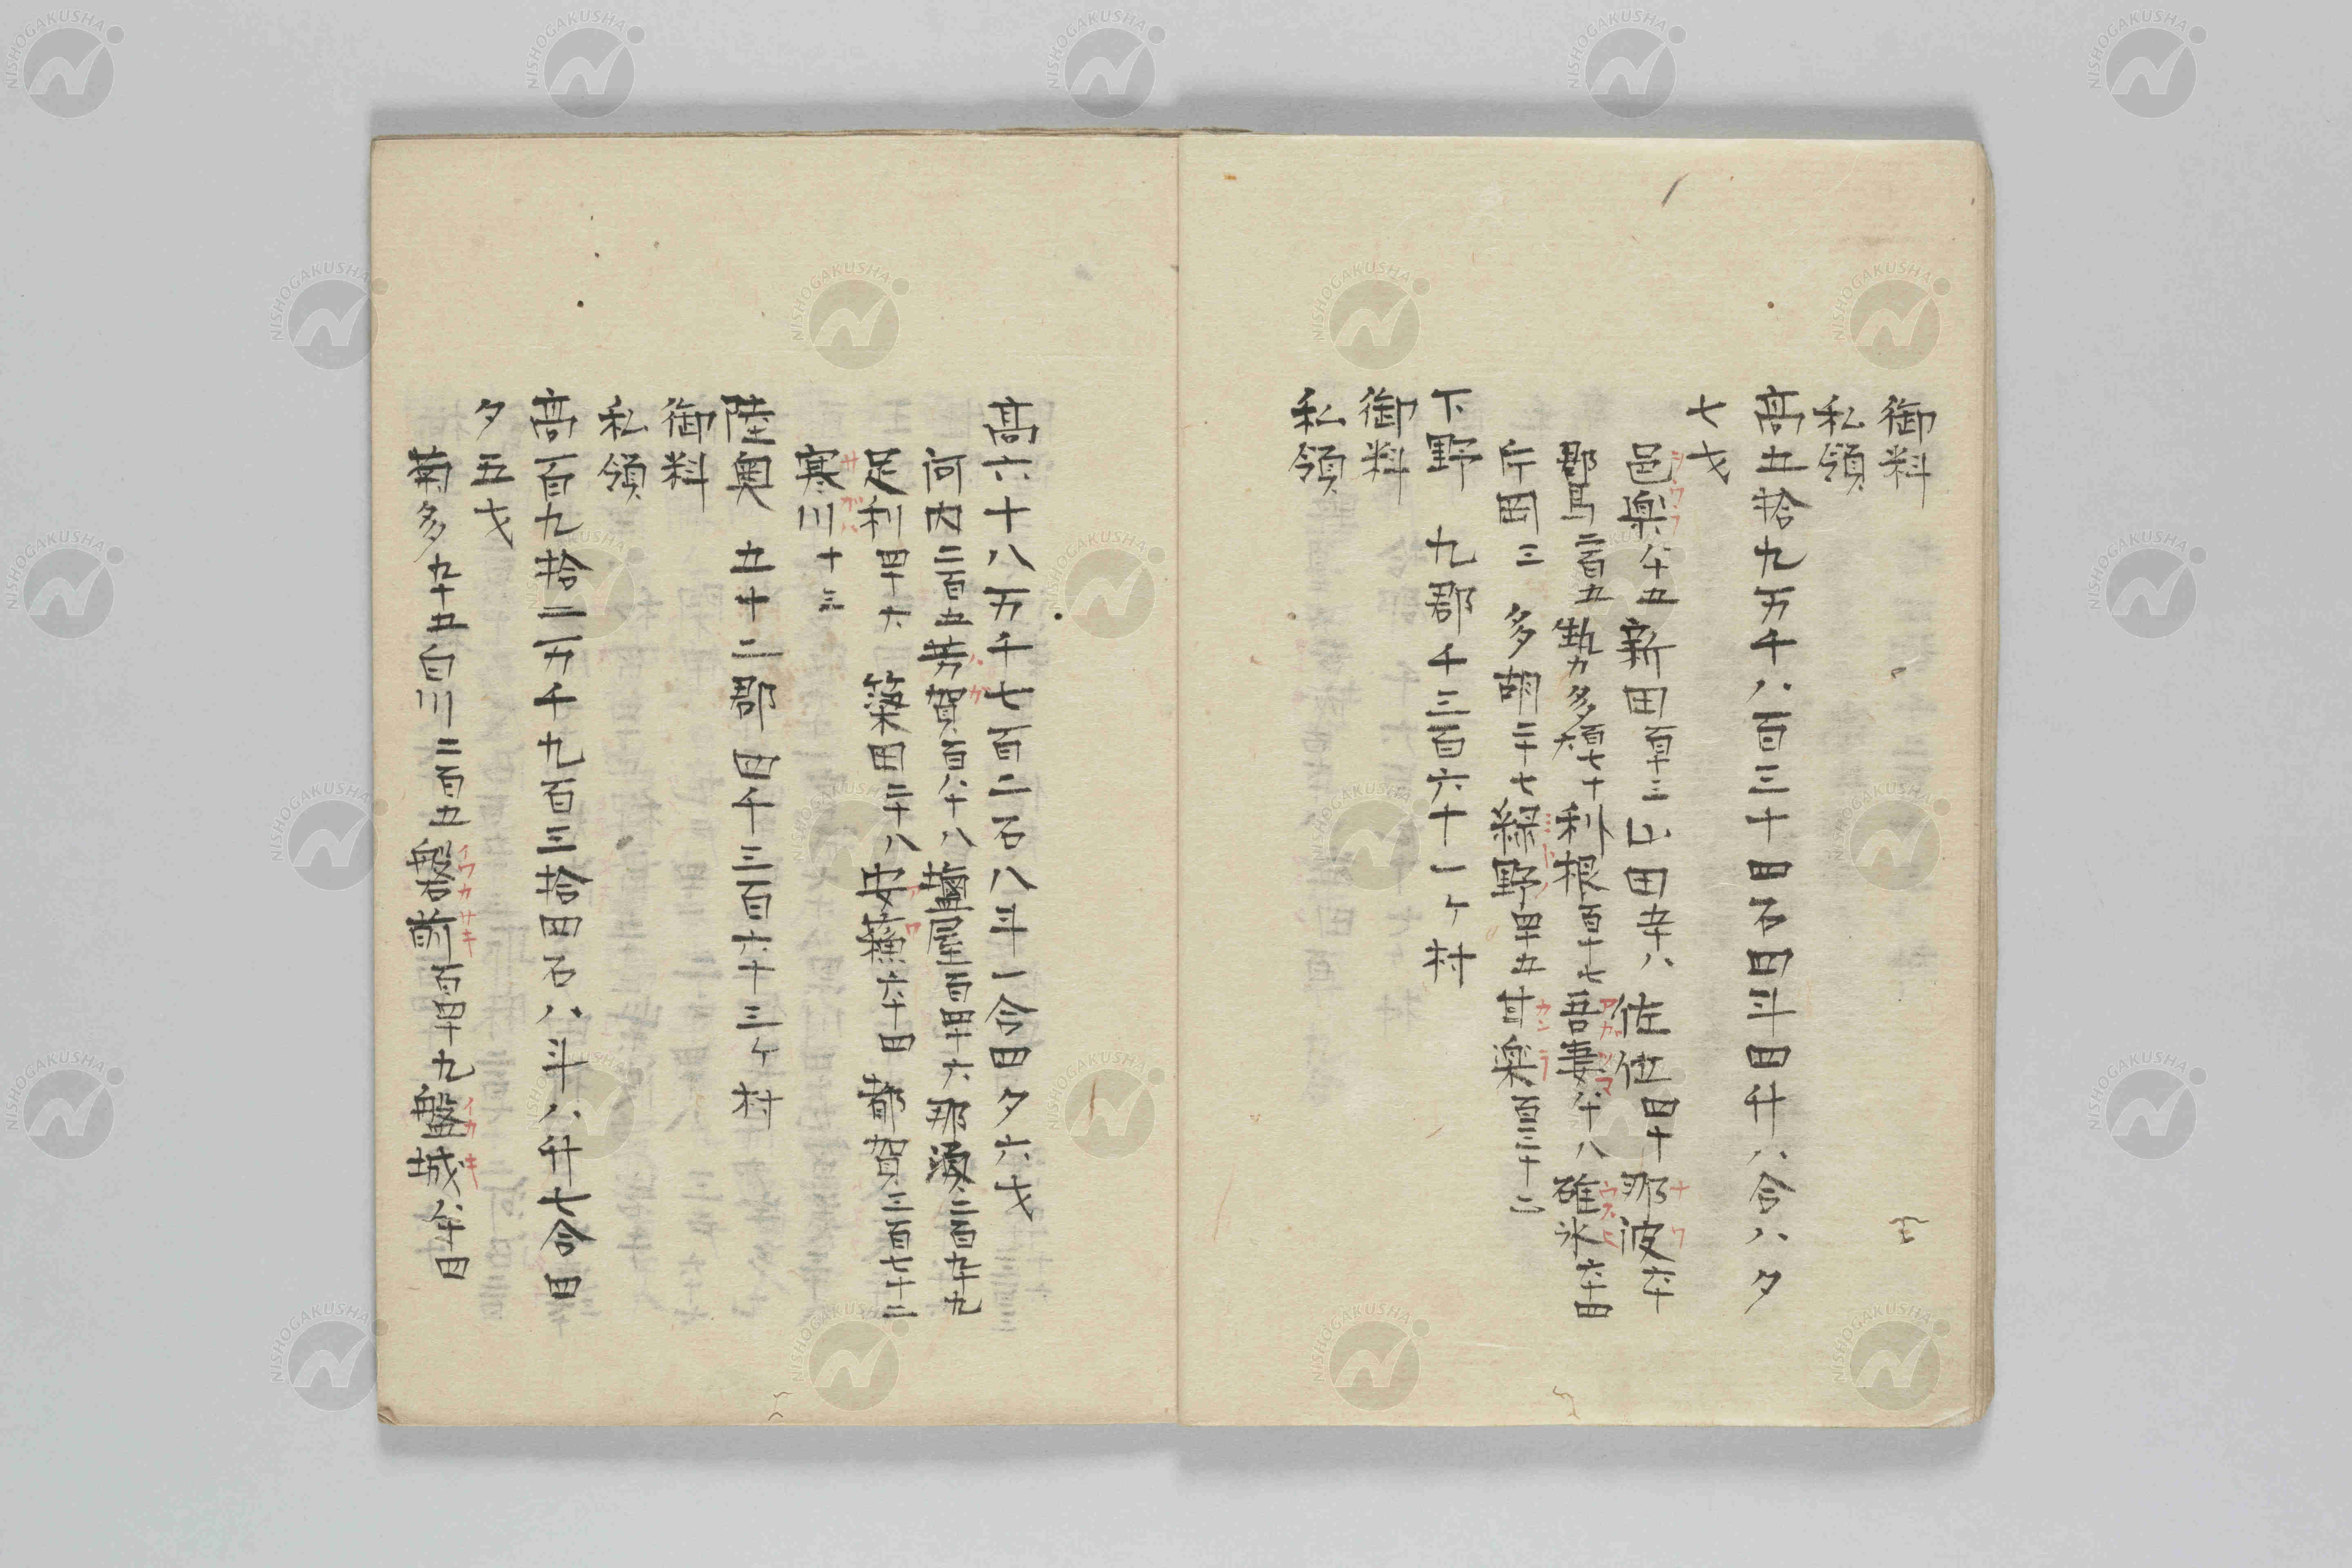 御料
私領
高五拾九万千八百三十四石四斗四升八合八夕
七才
邑楽八十五新田百十三山田五十八佐位四十那波六十
群馬二百五勢多百七十利根百十七吾妻八十八碓氷六十四
片岡三多胡三十七緑野四十五甘楽百三十二
下野 九郡千三百六十一ヶ村
御料
私領
高六十八万千七百二石八斗一合四夕六才
河内二百五芳賀百八十八塩屋百四十六那須二百九十九
足利四十六 簗田三十八 安蘇六十四 都賀三百七十二
寒川十三
陸奥 五十二郡四千三百六十三ヶ村
御料
私領
高百九拾二万千九百三拾四石八斗八升七合四
夕五才
菊多九十五白川二百五磐前百四十九盤城八十四
シウラフ
ナワ
アカツマ
ウスヒ
ミトノ
カンラ
ハガ
アソ
サガハ
イワカサキ
イワキ
NISHOGAKUSHA